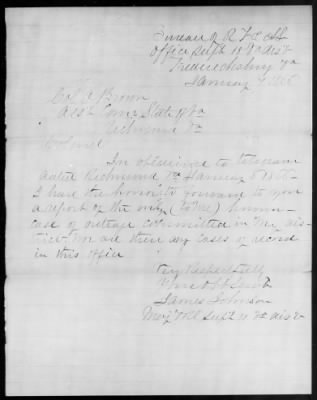 Bureau of R F & A L
Office Supt 10 Va Dist
Fredericksburg Va
January 1866
Col O Brown
Asst Comr State of Va
Richmond Va
Colonel
In obedience to telegram
dated Richmond Va January 5 1866
I have the honor to forward to you
a report of the only (to me) known
case of outrage committed in my dis-
trict nor are there any cases of record
in this office
Very Respectfully
Your Obt Servt
James Johnson
Supt 10 Va Dist